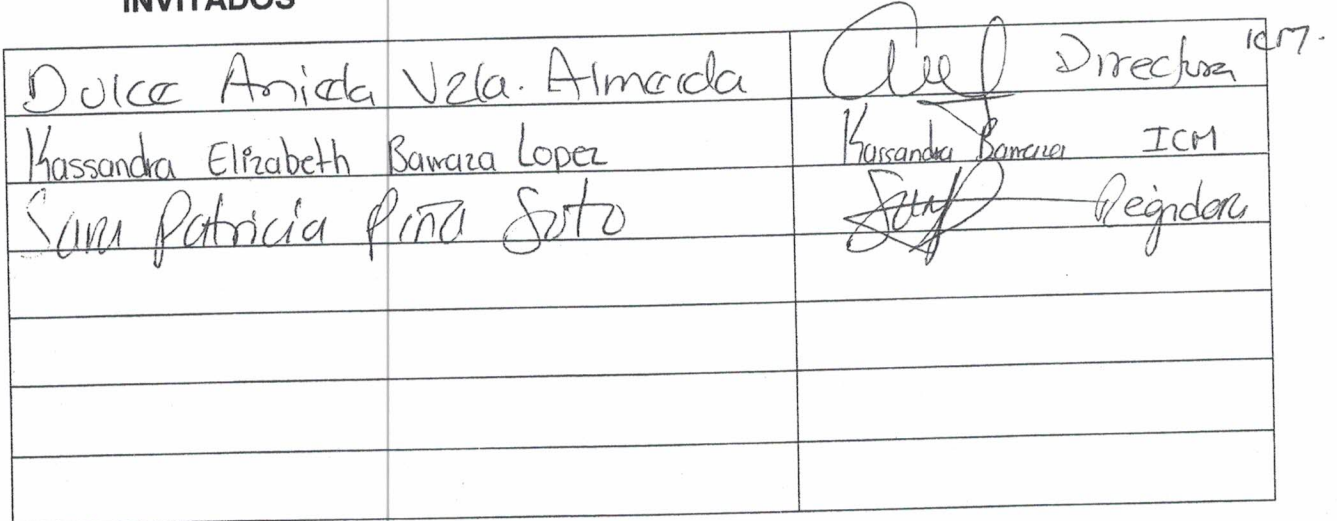 INVITADOS
Dulce Anieda Vzla. Almeida Directora ICM.
Kassandra Elizabeth Barraza Lopez Kassandra Barraza ICM
Sara Patricia Piña Soto Regidora